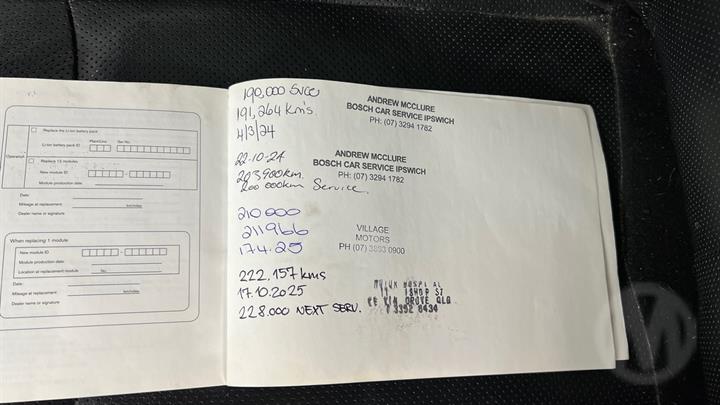 Replace the Li-ion battery pack
Plant/Line Ser No.
Li-ion battery pack ID
Operation
Replace 13 modules
New module ID
Module production date:
Date:
Mileage at replacement: km/miles
Dealer name or signature
When replacing 1 module
New module ID
Module production date:
Location at replacement module No.
Date:
Mileage at replacement: km/miles
Dealer name or signature
190,000 SVCE
191,264 Km's.
4/3/24
ANDREW MCCLURE
BOSCH CAR SERVICE IPSWICH
PH: (07) 3294 1782
22-10-24
203900km.
200 000km Service.
ANDREW MCCLURE
BOSCH CAR SERVICE IPSWICH
PH: (07) 3294 1782
210000
211966
17.4.25
VILLAGE
MOTORS
PH (07) 0900
222.157kms
17.10.2025
228.000 NEXT SERV.
ST
GROVE QLD
3352 8434